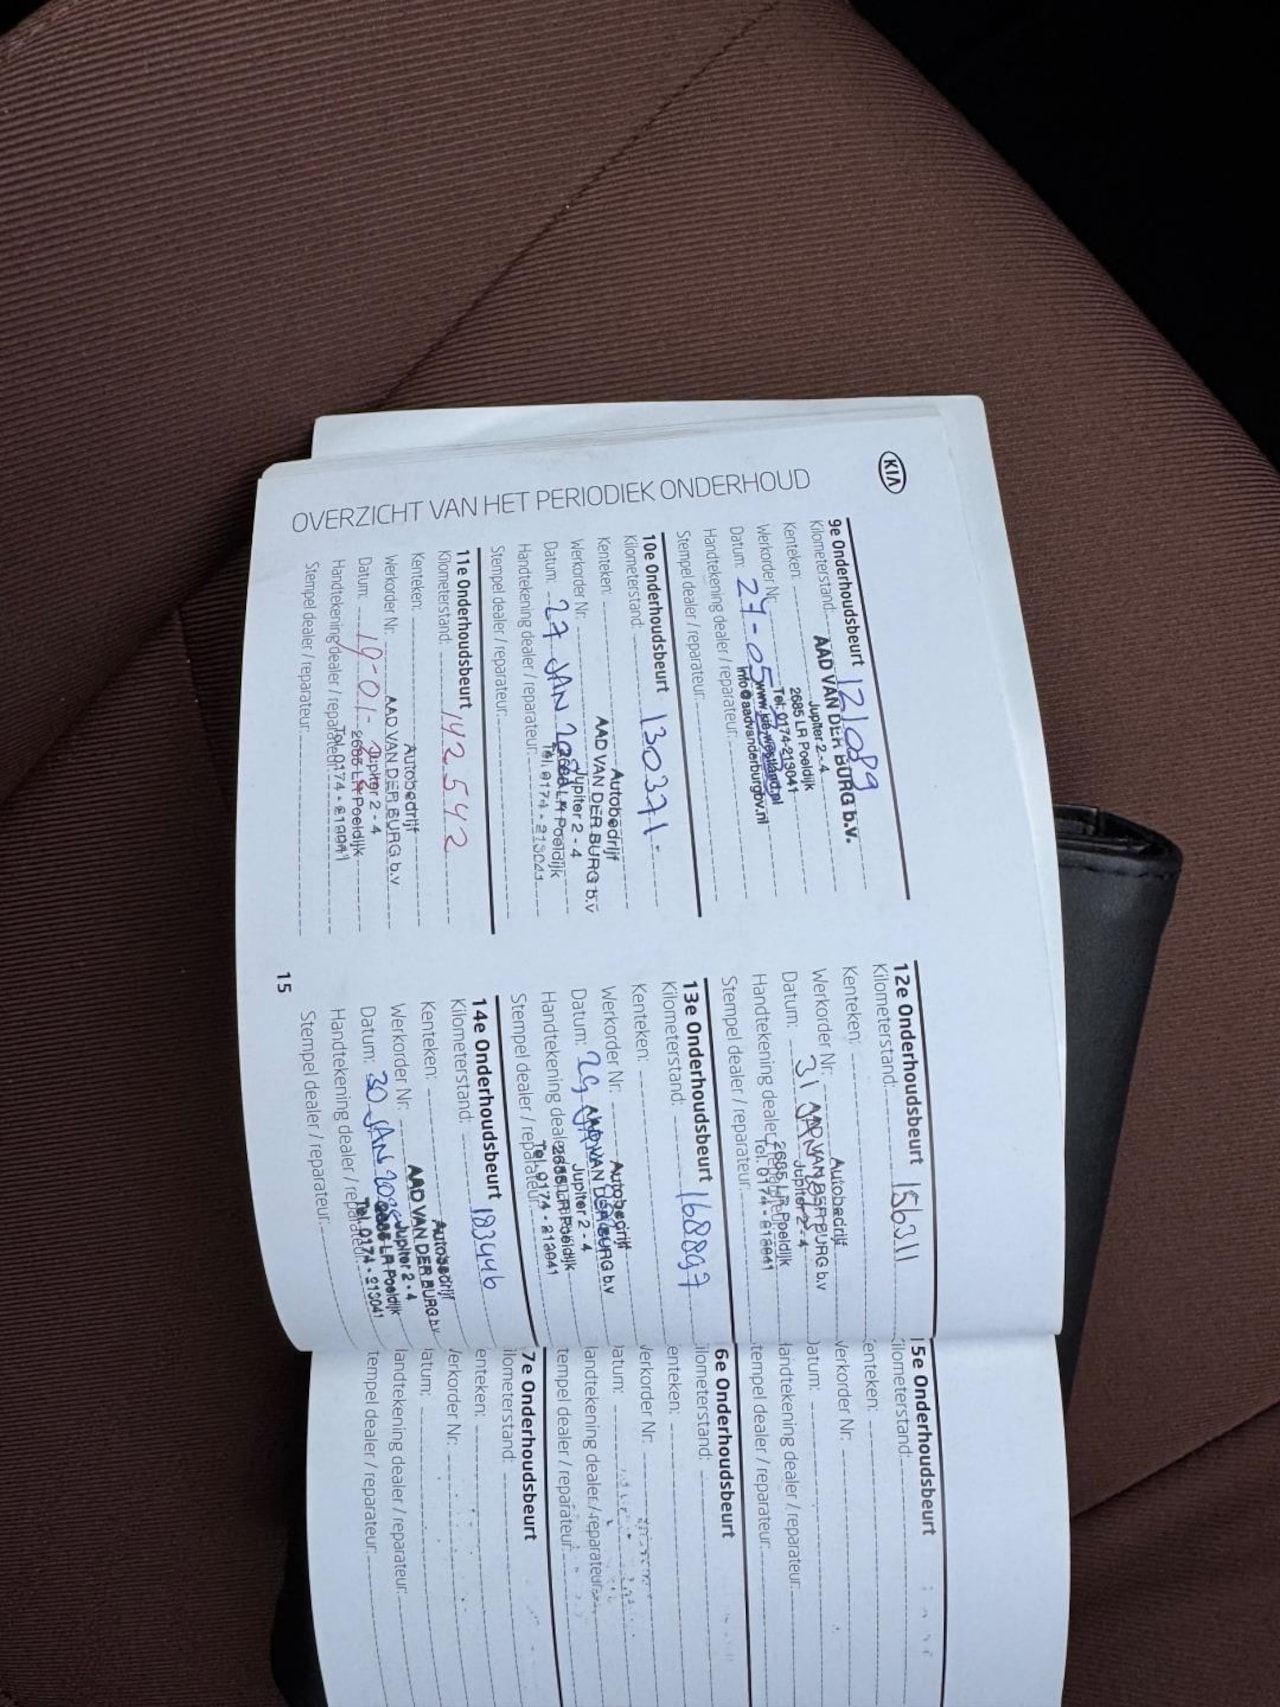 KIA
OVERZICHT VAN HET PERIODIEK ONDERHOUD
9e Onderhoudsbeurt
Kilometerstand: 121089
Kenteken:
Werkorder Nr:
Datum: 27-05
Handtekening dealer / reparateur:
Stempel dealer / reparateur:
AAD VAN DER BURG b.v.
Jupiter 2-4
2685 LR Poeldijk
Tel. 0174-213041
www.kia-westland.nl
info@aadvanderburgbv.nl
10e Onderhoudsbeurt
Kilometerstand: 130371-
Kenteken:
Werkorder Nr:
Datum: 27 JAN
Handtekening dealer / reparateur:
Stempel dealer / reparateur:
Autobedrijf
AAD VAN DER BURG b.v
Jupiter 2 - 4
2685 LR Poeldijk
Tel. 0174 - 213041
11e Onderhoudsbeurt
Kilometerstand: 142542
Kenteken:
Werkorder Nr:
Datum: 19-01-
Handtekening dealer / reparateur:
Stempel dealer / reparateur:
Autobedrijf
AAD VAN DER BURG b.v
Jupiter 2 - 4
2685 LR Poeldijk
Tel. 0174 - 213041
15
12e Onderhoudsbeurt
Kilometerstand: 156311
Kenteken:
Werkorder Nr:
Datum: 31 JAN
Handtekening dealer / reparateur:
Stempel dealer / reparateur:
Autobedrijf
AAD VAN DER BURG b.v
Jupiter 2 - 4
2685 LR Poeldijk
Tel. 0174 - 213041
13e Onderhoudsbeurt
Kilometerstand: 168897
Kenteken:
Werkorder Nr:
Datum: 29
Handtekening dealer / reparateur:
Stempel dealer / reparateur:
Autobedrijf
AAD VAN DER BURG b.v
Jupiter 2 - 4
2685 LR Poeldijk
Tel. 0174 - 213041
14e Onderhoudsbeurt
Kilometerstand: 183446
Kenteken:
Werkorder Nr:
Datum: 30 JAN
Handtekening dealer / reparateur:
Stempel dealer / reparateur:
Autobedrijf
AAD VAN DER BURG b.v
Jupiter 2 - 4
2685 LR Poeldijk
Tel. 0174 - 213041
15e Onderhoudsbeurt
ilometerstand:
enteken:
Verkorder Nr:
Datum:
landtekening dealer / reparateur:
tempel dealer / reparateur:
6e Onderhoudsbeurt
ilometerstand:
enteken:
Verkorder Nr:
Datum:
landtekening dealer / reparateur:
tempel dealer / reparateur:
7e Onderhoudsbeurt
ilometerstand:
enteken:
Verkorder Nr:
latum:
landtekening dealer / reparateur:
tempel dealer / reparateur: